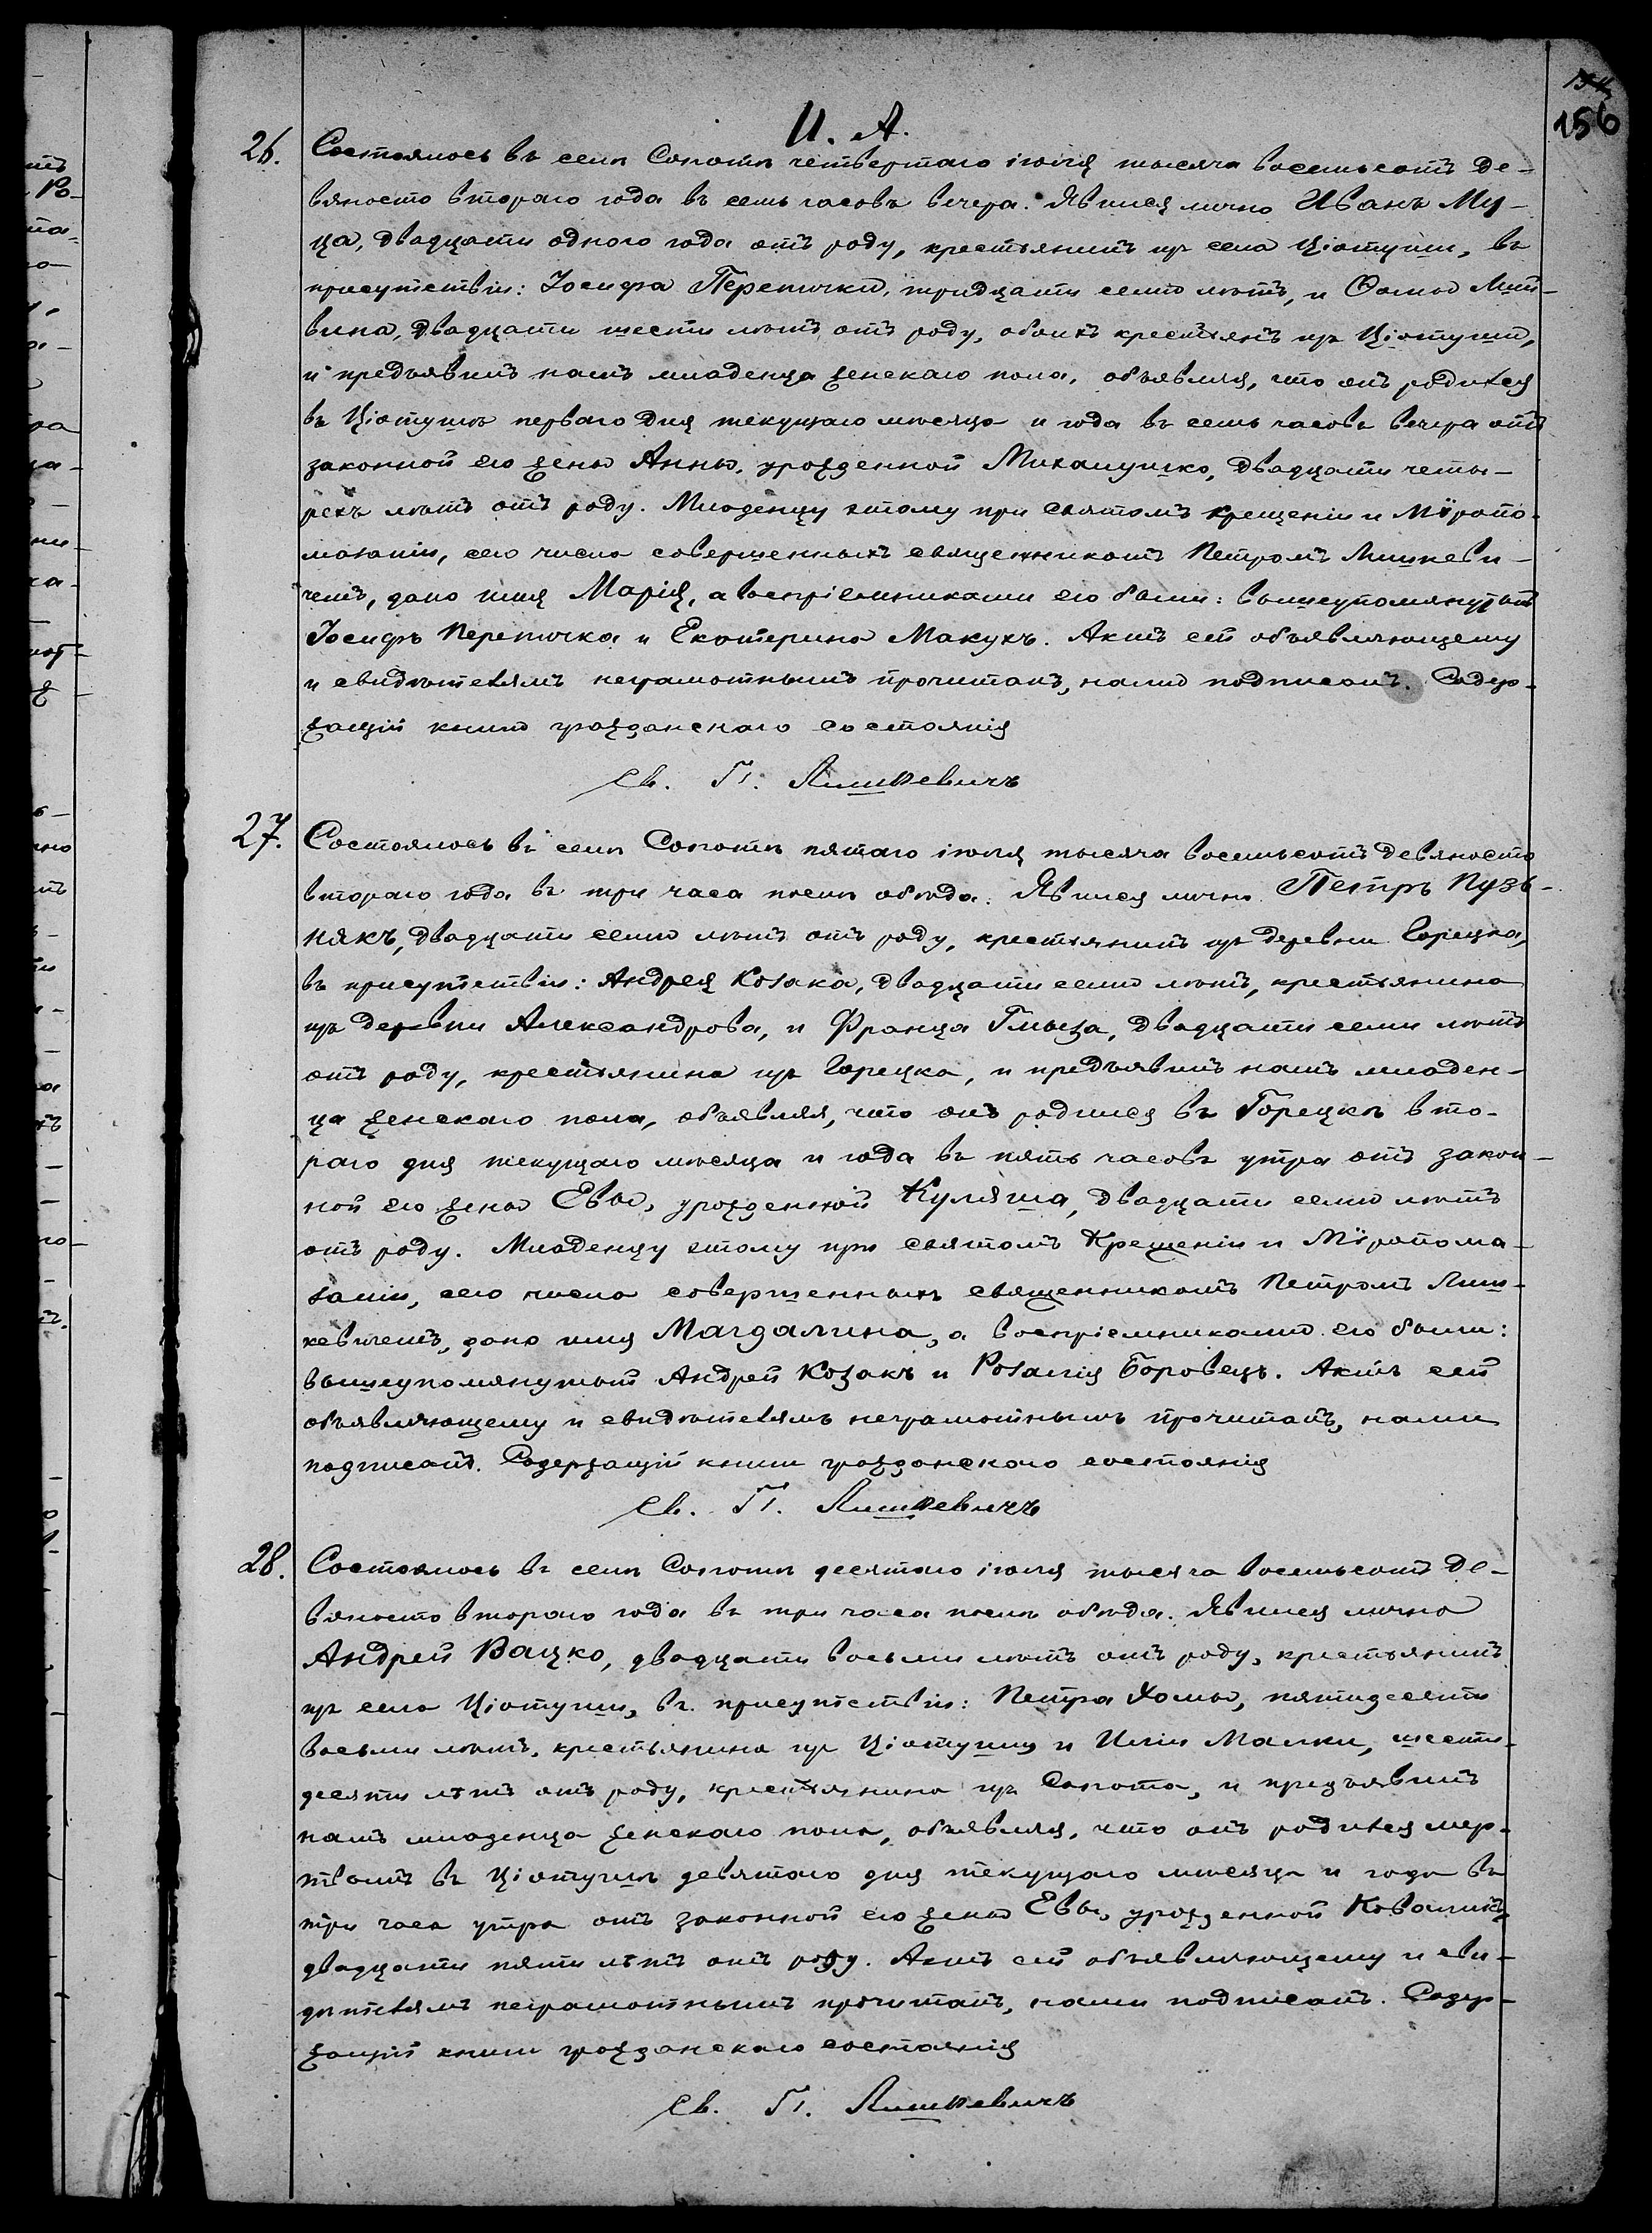 154
156
И. А.
26. Состоялось въ селѣ Сопотѣ четвертаго іюля тысяча восемьсотъ де-
вяносто втораго года въ семь часовъ вечера. Явился лично Иванъ Му-
ца, двадцати одного года отъ роду, крестьянинъ изъ села Ціотуши, въ
присутствіи: Іосифа Перепички, тридцати семи лѣтъ, и Ѳомы
вина, двадцати шести лѣтъ отъ роду, обоихъ крестьянъ изъ Ціотуши,
и предъявилъ намъ младенца женскаго пола, объявляя, что онъ родился
въ Ціотушѣ перваго дня текущаго мѣсяца и года въ семь часовъ вечера отъ
законной его жены Анны, урожденной Михалушко, двадцати четы-
рехъ лѣтъ отъ роду. Младенцу этому при Святомъ Крещеніи и Мѵропо-
мазаніи, сего числа совершенныхъ священникомъ Петромъ Лишкеви-
чемъ, дано имя Марія, а воспріемниками его были: вышеупомянутый
Іосифъ Перепичка и Екатерина Макухъ. Актъ сей объявляющему
и свидѣтелямъ неграмотнымъ прочитанъ, нами подписанъ. Содер-
жащій книги гражданскаго состоянія
Св. П. Лишкевичъ
27. Состоялось въ селѣ Сопотѣ пятаго іюля тысяча восемьсотъ девяносто
втораго года въ три часа послѣ обѣда. Явился лично Петръ Пузь-
някъ, двадцати семи лѣтъ отъ роду, крестьянинъ изъ деревни Горецка,
въ присутствіи: Андрея Козака, двадцати семи лѣтъ, крестьянина
изъ деревни Александрова, и Франца Гмыза, двадцати семи лѣтъ
отъ роду, крестьянина изъ Горецка, и предъявилъ намъ младен-
ца женскаго пола, объявляя, что онъ родился въ Горецкѣ вто-
раго дня текущаго мѣсяца и года въ пять часовъ утра отъ закон-
ной его жены Евы, урожденной Куляша, двадцати семи лѣтъ
отъ роду. Младенцу этому при Святомъ Крещеніи и Мѵропома-
заніи, сего числа совершенныхъ священникомъ Петромъ Лиш-
кевичемъ, дано имя Магдалина, а воспріемниками его были:
вышеупомянутый Андрей Козакъ и Розалія Боровецъ. Актъ сей
объявляющему и свидѣтелямъ неграмотнымъ прочитанъ, нами
подписанъ. Содержащій книги гражданскаго состоянія
Св. П. Лишкевичъ
28. Состоялось въ селѣ Сопотѣ десятаго іюля тысяча восемьсотъ де-
вяносто втораго года въ три часа послѣ обѣда. Явился лично
Андрей Вацко, двадцати восьми лѣтъ отъ роду, крестьянинъ
изъ села Ціотуши, въ присутствіи: Петра Хомы, пятидесяти
восьми лѣтъ, крестьянина изъ Ціотуши и Иліи Малки, шести-
десяти лѣтъ отъ роду, крестьянина изъ Сопота, и предъявилъ
намъ младенца женскаго пола, объявляя, что онъ родился мер-
твымъ въ Ціотушѣ девятаго дня текущаго мѣсяца и года въ
три часа утра отъ законной его жены Евы, урожденной Коваликъ,
двадцати пяти лѣтъ отъ роду. Актъ сей объявляющему и сви-
дѣтелямъ неграмотнымъ прочитанъ, нами подписанъ. Содер-
жащій книги гражданскаго состоянія
Св. П. Лишкевичъ